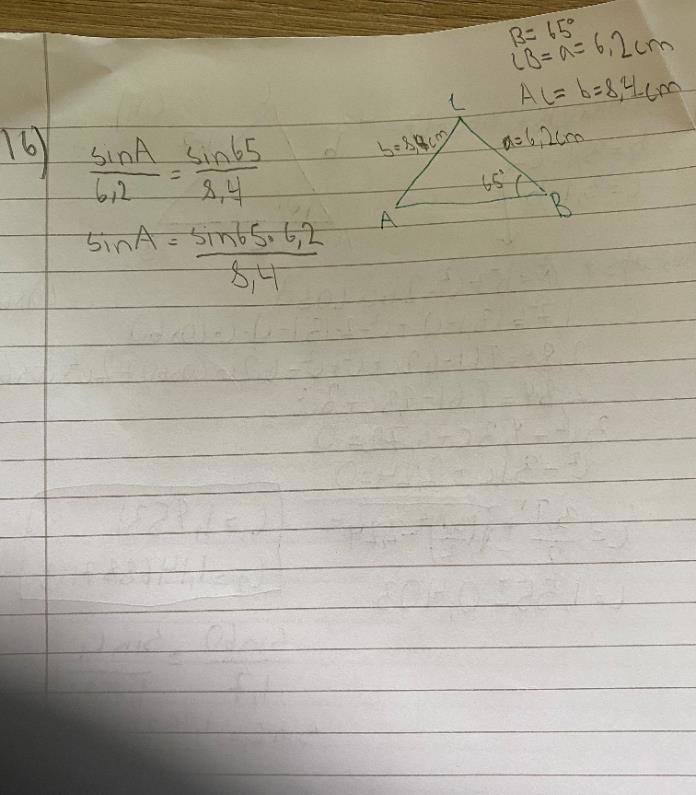 B = 65°
CB = a = 6,2cm
AC = b = 8,4cm
16)
sinA / 6,2 = sin65 / 8,4
sinA = sin65 · 6,2 / 8,4
C
b = 8,4cm
a = 6,2cm
65°
A
B